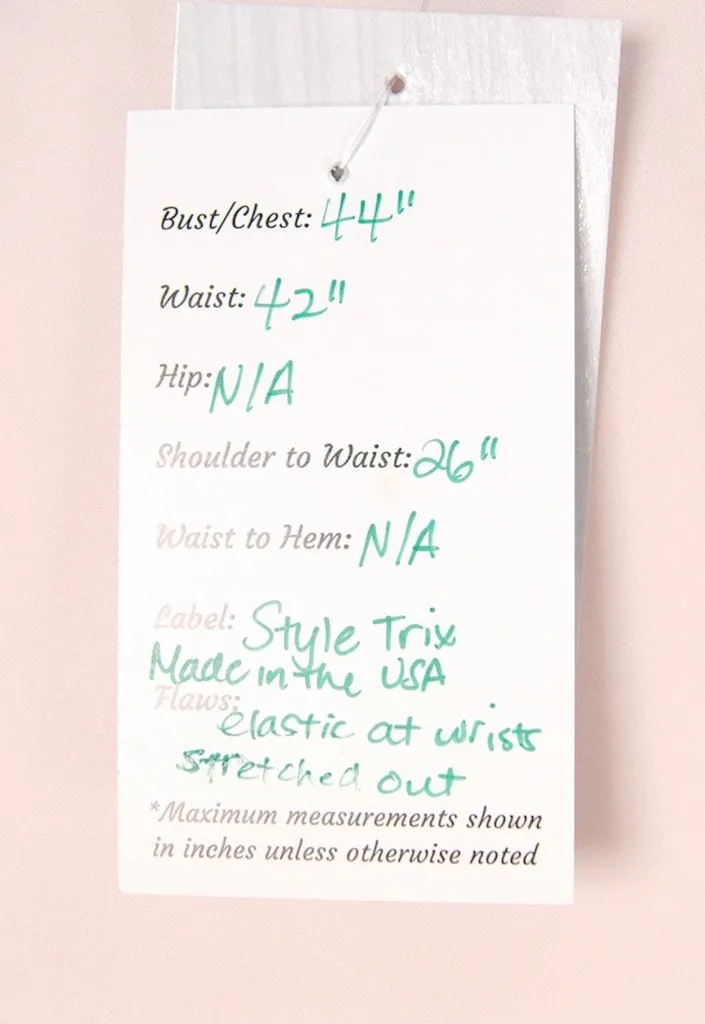 Bust/Chest: 44"
Waist: 42"
Hip: N/A
Shoulder to Waist: 26"
Waist to Hem: N/A
Label: Style Trix
Made in the USA
Flaws:
elastic at wrists
stretched out
*Maximum measurements shown
in inches unless otherwise noted